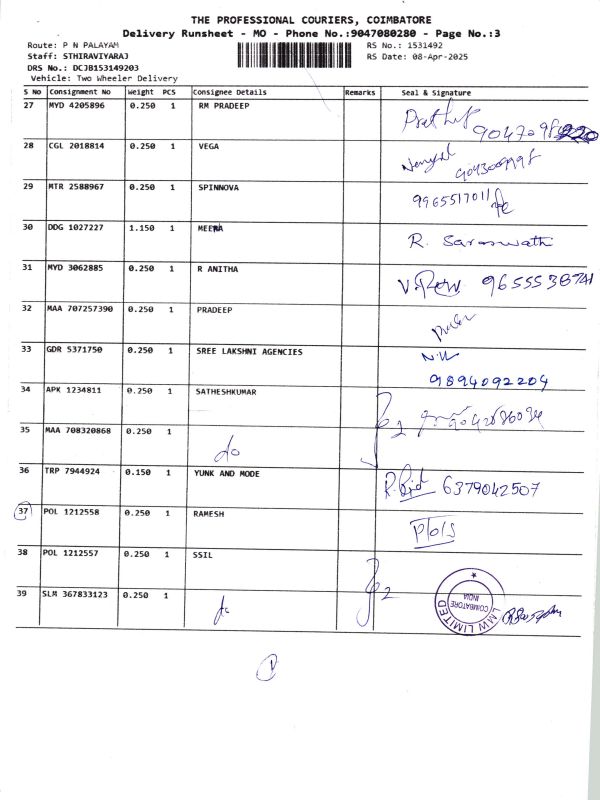 THE PROFESSIONAL COURIERS, COIMBATORE
Delivery Runsheet - MO - Phone No.:9047080280 - Page No.:3
Route: P N PALAYAM RS No.: 1531492
Staff: STHIRAVIYARAJ RS Date: 08-Apr-2025
DRS No.: DCJB153149203
Vehicle: Two Wheeler Delivery
S No Consignment No Weight PCS Consignee Details Remarks Seal & Signature
27 MYD 4205896 0.250 1 RM PRADEEP
28 CGL 2018814 0.250 1 VEGA
29 MTR 2588967 0.250 1 SPINNOVA
9965517011
30 DDG 1027227 1.150 1 MEERA
R. Saraswathi
31 MYD 3062885 0.250 1 R ANITHA
9655538741
32 MAA 707257390 0.250 1 PRADEEP
33 GDR 5371750 0.250 1 SREE LAKSHNI AGENCIES
9894092204
34 APK 1234811 0.250 1 SATHESHKUMAR
2
35 MAA 708320868 0.250 1
do
36 TRP 7944924 0.150 1 YUNK AND MODE
6379042507
37 POL 1212558 0.250 1 RAMESH
38 POL 1212557 0.250 1 SSIL
2
39 SLM 367833123 0.250 1
LMW LIMITED
COIMBATORE
INDIA
1